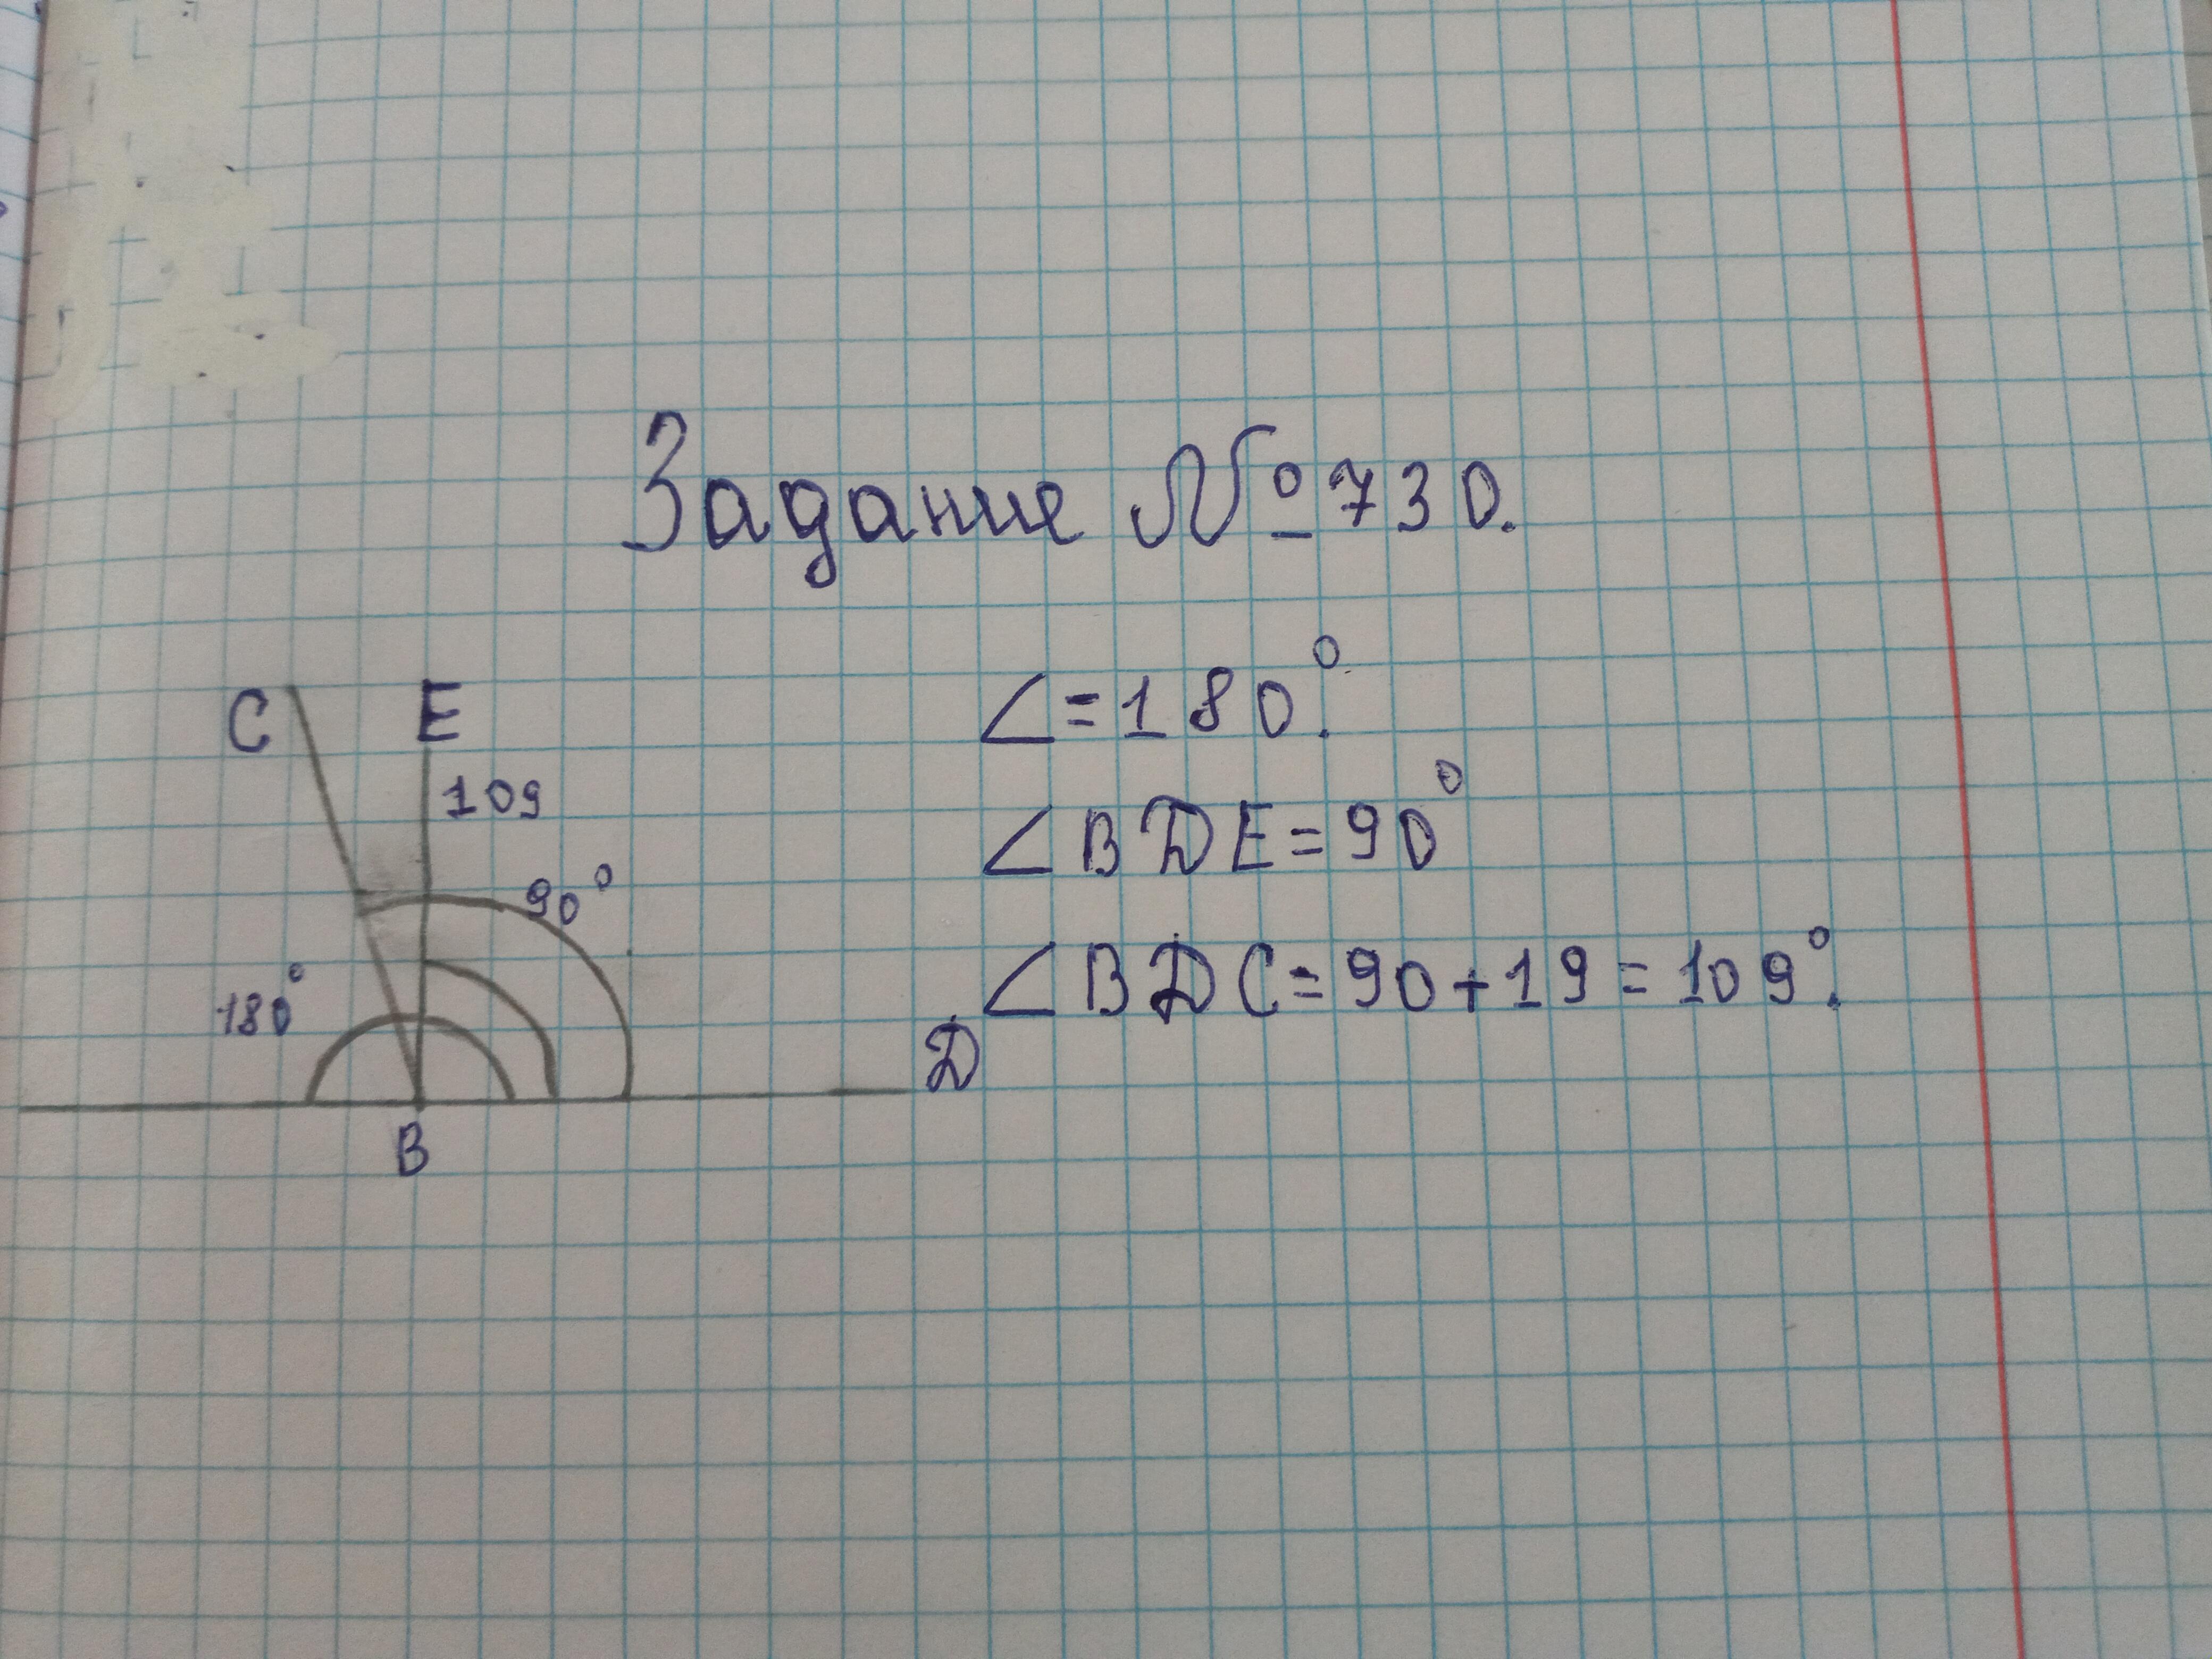 Задание № 730.
C E
109
90°
180°
B
D
∠=180°.
∠BDE=90°
∠BDC=90+19=109°.